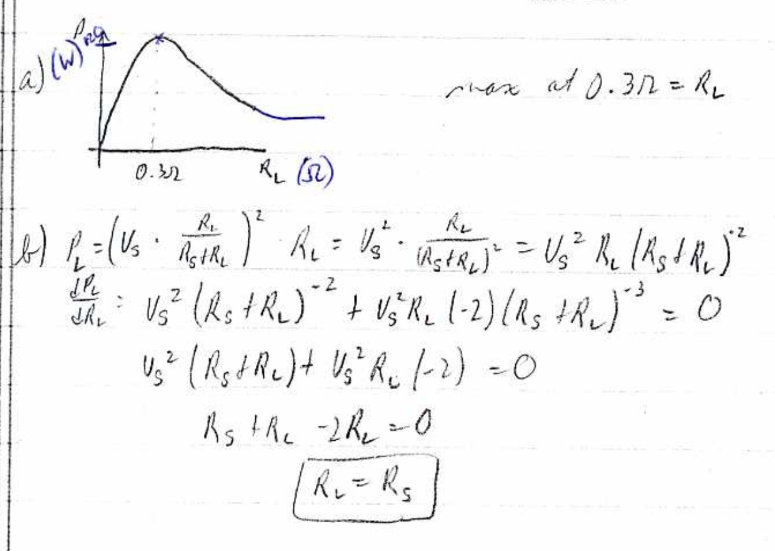 a) P (W) 120
max at 0.3Ω = R_L
0.3Ω R_L (Ω)
b) P_L = (V_S · R_L/(R_S+R_L))² R_L = V_S² · R_L/(R_S+R_L)² = V_S² R_L (R_S+R_L)^-2
dP_L/dR_L : V_S² (R_S+R_L)^-2 + V_S² R_L (-2)(R_S+R_L)^-3 = 0
V_S² (R_S+R_L) + V_S² R_L (-2) = 0
R_S + R_L - 2R_L = 0
R_L = R_S